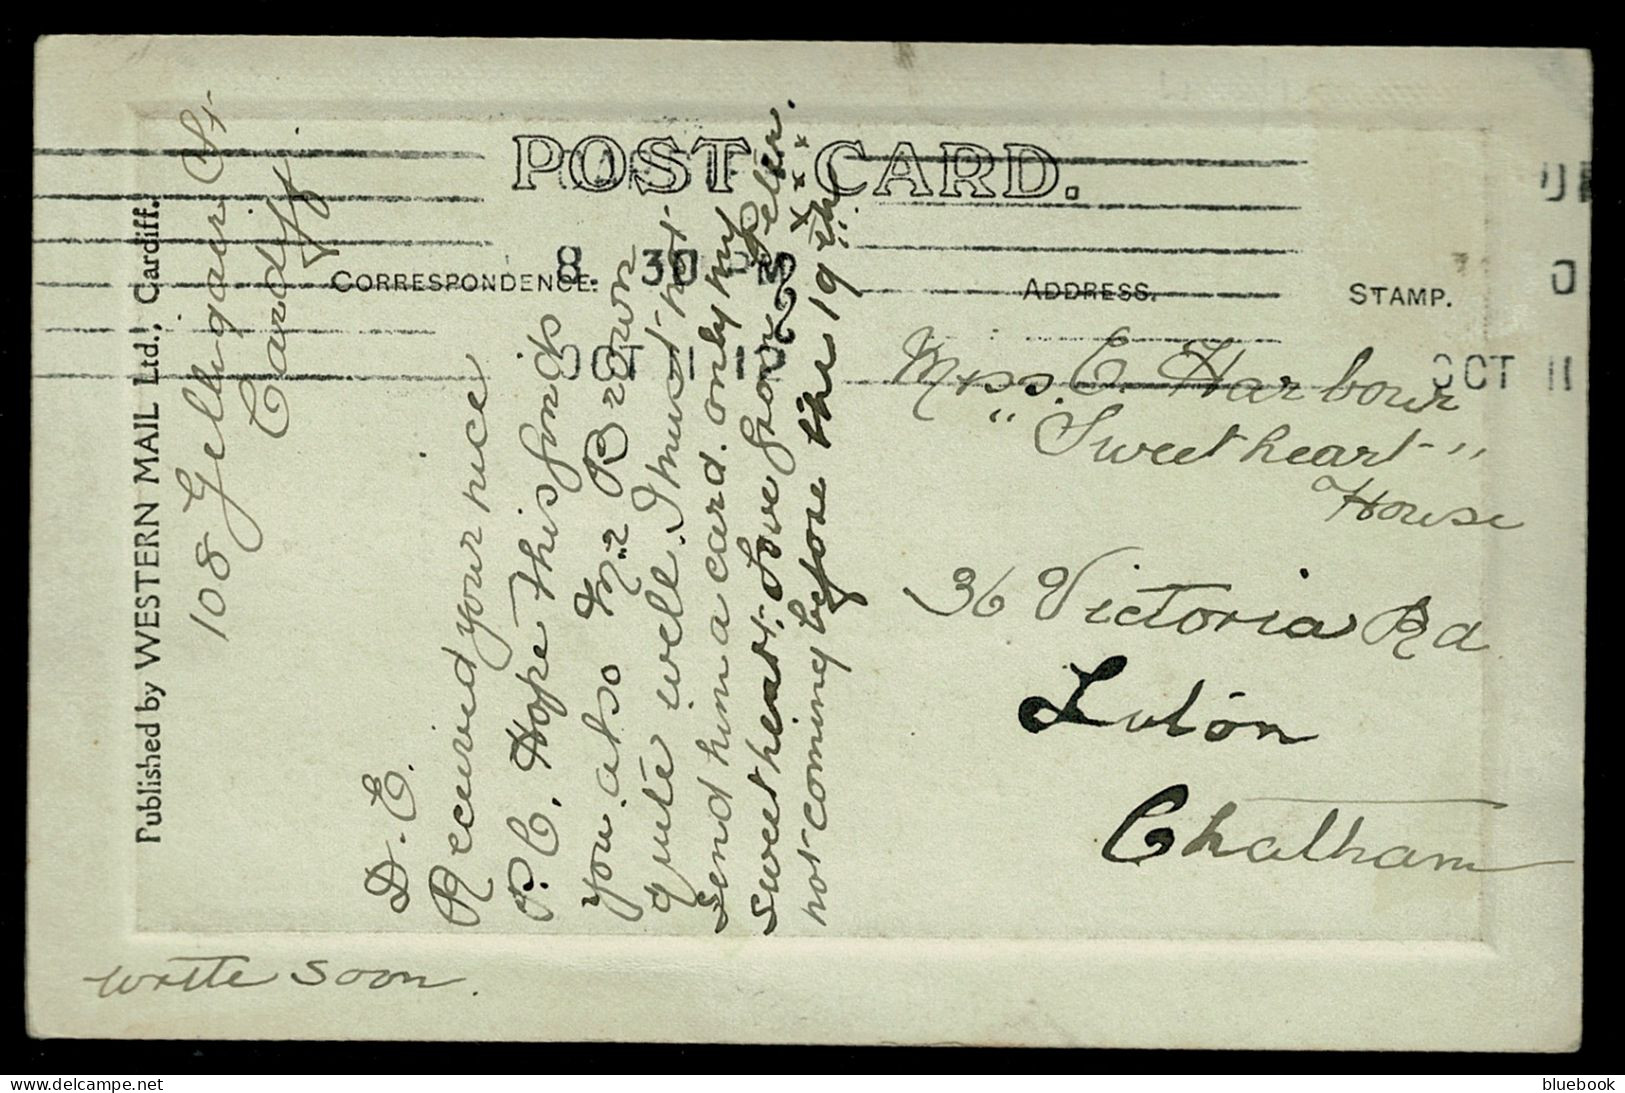 POST CARD.
CORRESPONDENCE.
ADDRESS.
STAMP.
8. 30 PM
OCT 11 12
OCT 11
Published by WESTERN MAIL Ltd., Cardiff.
108 Gelligaer St
Cardiff
D. E.
Received your nice
P. C. Hope this finds
you also Mr Brown
quite well. I must not
send him a card. only my
sweetheart. Love from Peter.
not coming before the 19th
x x x x
write soon.
Miss. E. Harbour
"Sweetheart"
House
36 Victoria Rd
Luton
Chatham
www.delcampe.net
bluebook